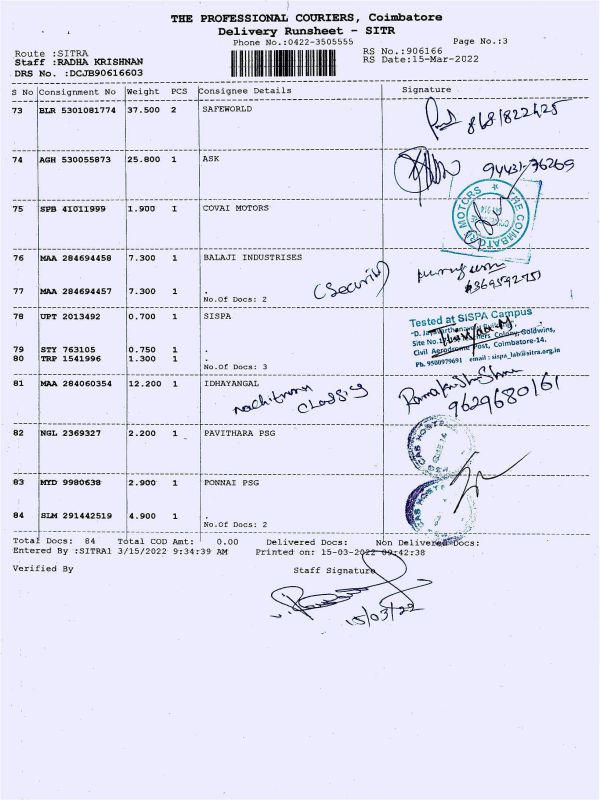 THE PROFESSIONAL COURIERS, Coimbatore
Delivery Runsheet - SITR
Phone No.:0422-3505555 Page No.:3
Route :SITRA RS No.:906166
Staff :RADHA KRISHNAN RS Date:15-Mar-2022
DRS No. :DCJB90616603
S No Consignment No Weight PCS Consignee Details Signature
73 BLR 5301081774 37.500 2 SAFEWORLD
74 AGH 530055873 25.800 1 ASK
94431-76269
75 SPB 41011999 1.900 1 COVAI MOTORS
THE COIMBATORE MOTORS
76 MAA 284694458 7.300 1 BALAJI INDUSTRISES
(Security)
77 MAA 284694457 7.300 1 .
No.Of Docs: 2
78 UPT 2013492 0.700 1 SISPA
Tested at SISPA Campus
Site No.
Colony, Goldwins,
Civil Aerodrome Post, Coimbatore-14.
Ph. 9500979691 email : sispa_lab@sitra.org.in
79 STY 763105 0.750 1 .
80 TRP 1541996 1.300 1 .
No.Of Docs: 3
81 MAA 284060354 12.200 1 IDHAYANGAL
9629680161
82 NGL 2369327 2.200 1 PAVITHARA PSG
83 MYD 9980638 2.900 1 PONNAI PSG
84 SLM 291442519 4.900 1 .
No.Of Docs: 2
Total Docs: 84 Total COD Amt: 0.00 Delivered Docs: Non Delivered Docs:
Entered By :SITRA1 3/15/2022 9:34:39 AM Printed on: 15-03-2022 09:42:38
Verified By Staff Signature
15/03/22